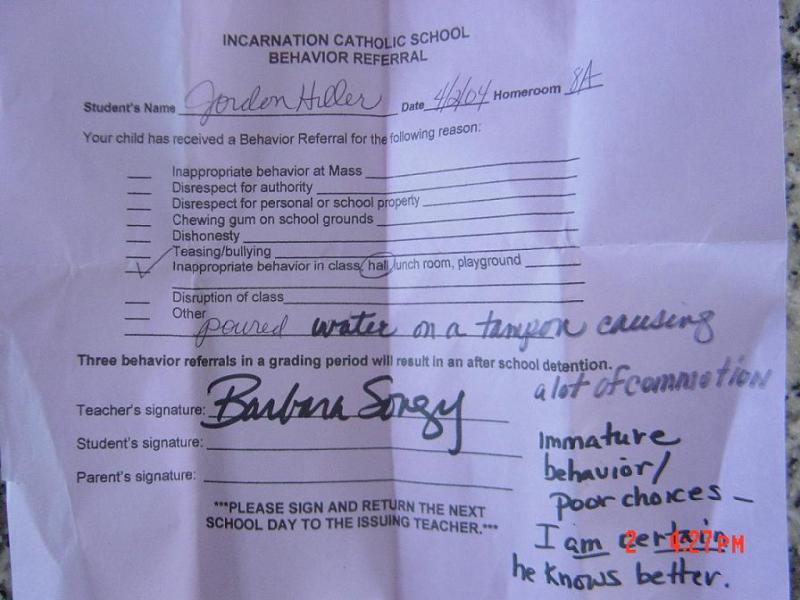 INCARNATION CATHOLIC SCHOOL
BEHAVIOR REFERRAL
Student's Name Jordon Hiller Date 4/2/04 Homeroom 8A
Your child has received a Behavior Referral for the following reason:
Inappropriate behavior at Mass
Disrespect for authority
Disrespect for personal or school property
Chewing gum on school grounds
Dishonesty
Teasing/bullying
✓ Inappropriate behavior in class, hall, lunch room, playground
Disruption of class
Other
poured water on a tampon causing
Three behavior referrals in a grading period will result in an after school detention.
a lot of commotion
Teacher's signature: Barbara Songy
Student's signature:
Parent's signature:
Immature
behavior/
poor choices –
I am certain
he knows better.
***PLEASE SIGN AND RETURN THE NEXT
SCHOOL DAY TO THE ISSUING TEACHER.***
2 4:27PM